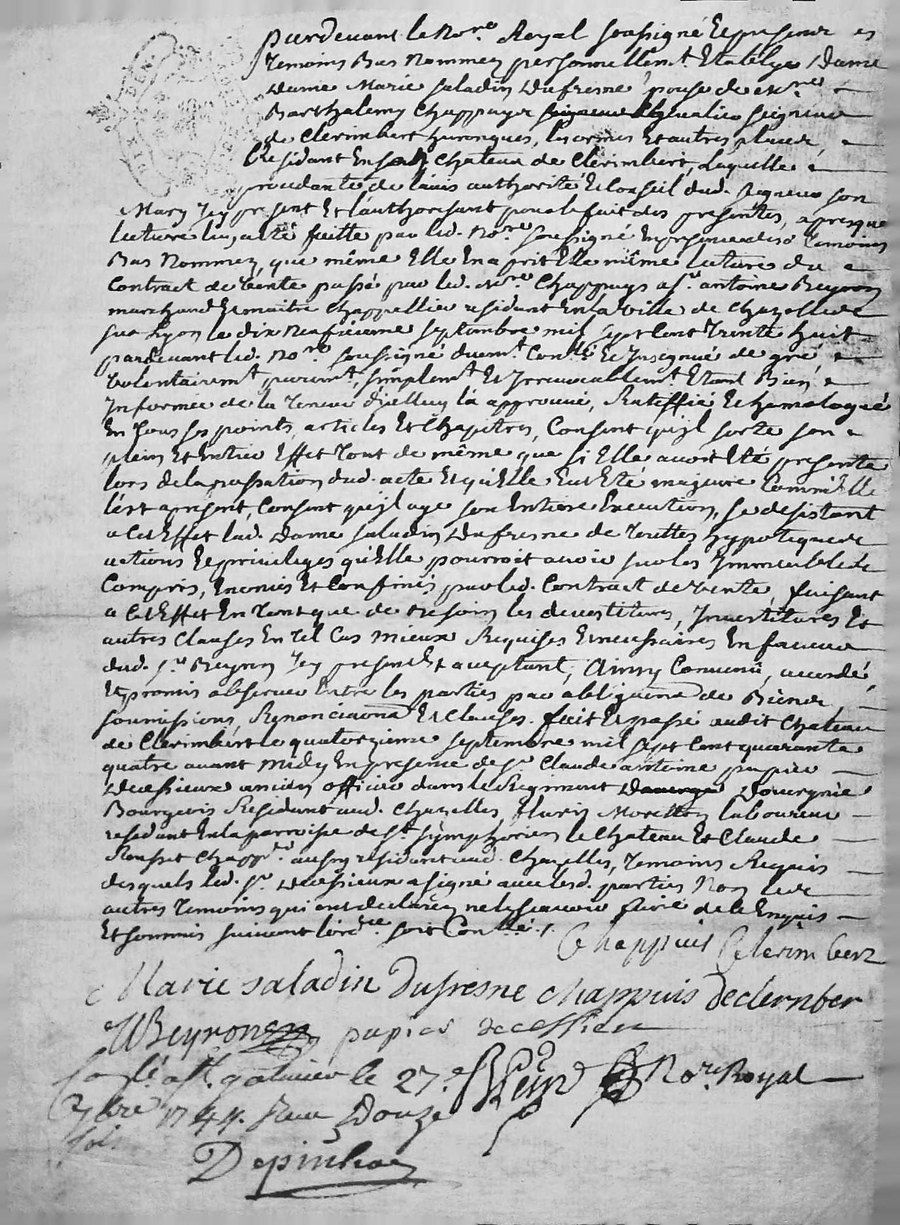 Pardevant le No.re Royal soussigné Et presence es
temoins Bas Nommez personnellem.t Etablye Dame
Dame Marie saladin Dufresne Epouse de
Barthelemy Chappuys seigneur Chevalier seigneur
de Clerimbert hurongues, les ormes Et autres places,
Residant En son Chateau de Clerimbert, Laquelle
procedante de lavis authorité Et Conseil dud. seigneur son
Mary Icy present Et l'authorisant pour le fait des presentes, apres que
lecture luy a été faitte par led. No.re soussigné En presence desd. Temoins
Bas Nommez, que même Elle En a prit Elle même lecture du
Contract de Vente passé par led. Chappuys a s.r antoine Beyron
marchand Et maitre Chappellier residant En la Ville de Chazelles
sur Lyon le dix neufvieme septembre mil sept Cent Trente huit
pardevant led. No.re soussigné duem.t Conllé Et Insignué de gré
Volontairem.t, purem.t, simplem.t Et Irrevocablem.t Etant Bien
Informée de la Teneur d'icelluy la approuvé, Ratiffié Et homologué
En Tous ses points, articles Et Chapitres, Consent qu'jl sorte son
plein Et Entier Effet Tout de même que si Elle avoit Eté presente
lors de la passation dud. acte Et qu'Elle Eut Eté majeure Comm'Elle
l'est apresent, Consent qu'jl aye son Entiere Execution, se desistant
a Cet Effet lad. Dame saladin Dufresne de Touttes hypoteques
actions Et privileges qu'Elle pourroit avoir sur les Immeubles
Compris, Enoncés Et Confinés par led. Contract de Vente, faisant
a Cet Effet En Tant que de Besoin les devestitures, Investitures Et
autres Clauses En Tel Cas mieux Requises Et necessaires En faveur
dud. s.r Beyron Icy present Et acceptant, Ainsy Convenu, accordé,
Et promis observer Entre les parties par obligaōn de Biens,
soumissions, Renonciaōns Et Clauses. fait Et passé audit Chateau
de Clerimbert le quatorzieme septembre mil sept Cent quarante
quatre avant midy En presence de s.r Claude antoine papier
Decessieux ancien officier dans le Regiment Dauvergne
Bourgeois Residant aud. Chazelles, fleury Morellon laboureur
residant En la parroisse de St symphorien le Chateau Et Claude
Rousset Chapp.r aussy residant aud. Chazelles, Temoins Requis
desquels led. s.r Decessieux a signé avec lesd. parties Non les
autres Temoins qui ont declarez ne le sçavoir faire de ce Enquis
Et sommés suivant l'ord.ce soit Conllé.
Chappuis Clerimbert
Marie saladin dufresne chappuis declernber
Beyron papier decessieu
No.re Royal
le 27.e
7bre 1744. Reçu Douze
sols